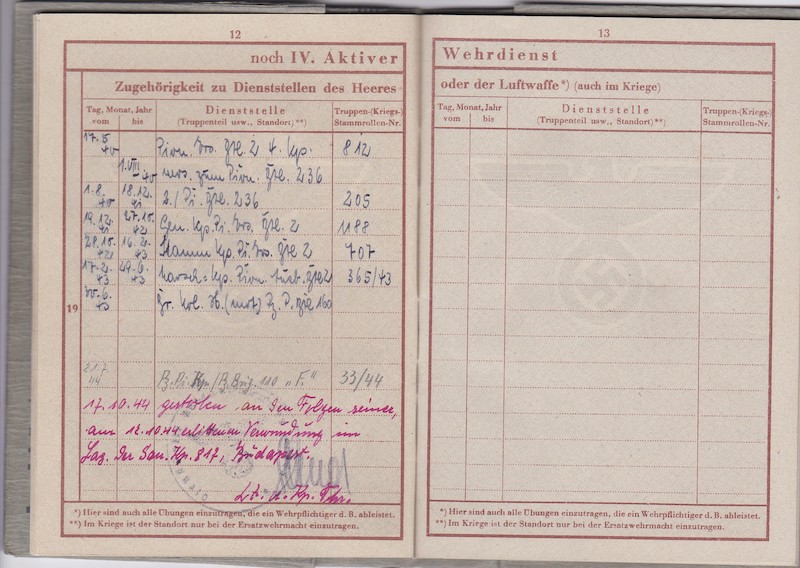 12
noch IV. Aktiver
Zugehörigkeit zu Dienststellen des Heeres
Tag, Monat, Jahr
vom bis
Dienststelle
(Truppenteil usw., Standort)**)
Truppen-(Kriegs-)
Stammrollen-Nr.
17.5 40 Pion. Ers. Btl. 2 4. Kp. 812
1.VIII 40 vers. zum Pion. Btl. 236
1.8. 40 18.12. 41 2./Pi. Btl. 236 205
19.12. 41 27.10. 42 Gen. Kp. Pi. Ers. Btl. 2 1188
28.10. 42 16.2. 43 Stamm Kp. Pi. Ers. Btl. 2 707
17.2. 43 29.6. 43 Marsch=Kp. Pion. Ausb. Btl 2 365/43
30.6. 43 (mot) Pz. P. Btl 160
19
21.7 44 P. Pi. Kp./P. Brig. 110 „F." 33/44
17.10.44 gestorben an den Folgen seiner,
am 12.10.44 erlittenen Verwundung im
Laz. der San. Kp. 817, Budapest.
Lt. u. Kp. Fhr.
*) Hier sind auch alle Übungen einzutragen, die ein Wehrpflichtiger d. B. ableistet.
**) Im Kriege ist der Standort nur bei der Ersatzwehrmacht einzutragen.
13
Wehrdienst
oder der Luftwaffe*) (auch im Kriege)
Tag, Monat, Jahr
vom bis
Dienststelle
(Truppenteil usw., Standort)**)
Truppen-(Kriegs-)
Stammrollen-Nr.
*) Hier sind auch alle Übungen einzutragen, die ein Wehrpflichtiger d. B. ableistet.
**) Im Kriege ist der Standort nur bei der Ersatzwehrmacht einzutragen.